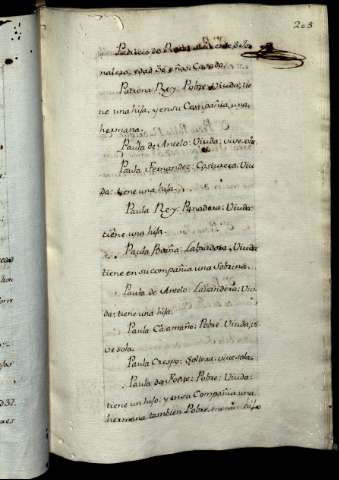 203
Patricio de
nalero, edad 38 años: Casado.
Patrona Rey: Pobre: Viuda, tie
ne una hija, y en su Compañia, una
hermana.
Paula de Antelo: Viuda, vive sola.
Paula Fernandez: Costurera: Viu
da: tiene una hija.
Paula Rey: Panadera: Viuda:
tiene una hija.
Paula Baña: Labradora: Viuda:
tiene en su compañia una Sobrina.
Paula de Antelo: Labandera: Viu
da, tiene una hija.
Paula Caamaño: Pobre: Viuda, vi
ve sola.
Paula Crespo: Soltera: vive sola.
Paula da Fonte: Pobre: Viuda:
tiene un hijo, y en su Compañia una
hermana tambien Pobre